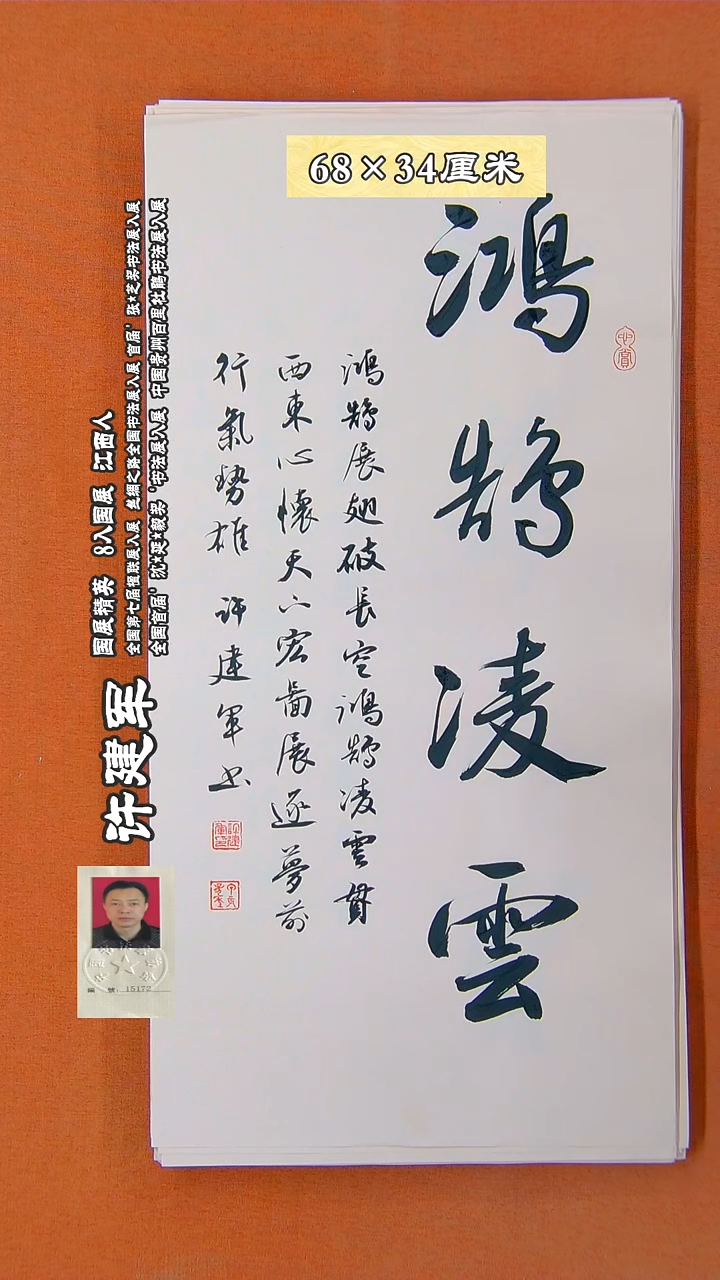 68×34厘米
鸿鹄凌雲
鸿鹄展翅破长空鸿鹄凌雲貫
西東心懷天下宏圖展逐夢前
行氣勢雄 许建军书
许建军
国展精英 8入国展 江西人
全国第七届楹联展入展 丝绸之路全国书法展入展 首届'张*芝奖书法展入展
全国首届'沈*延*毅奖'书法展入展 中国贵州百里杜鹃书法展入展
15172